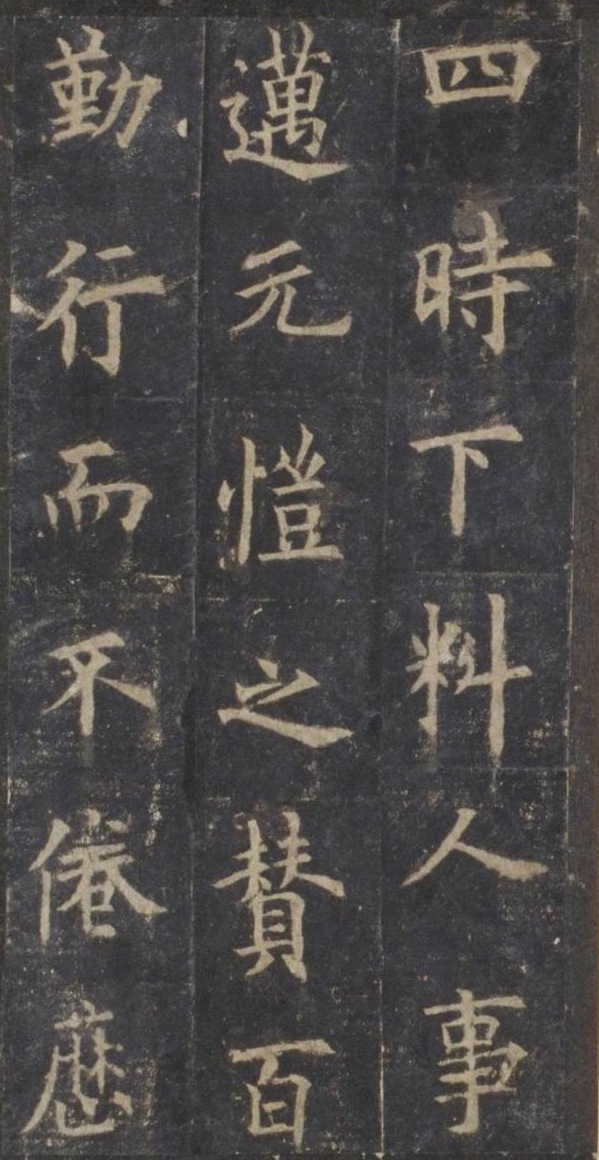 四時下料人事
邁元愷之贊百
勤行而不倦